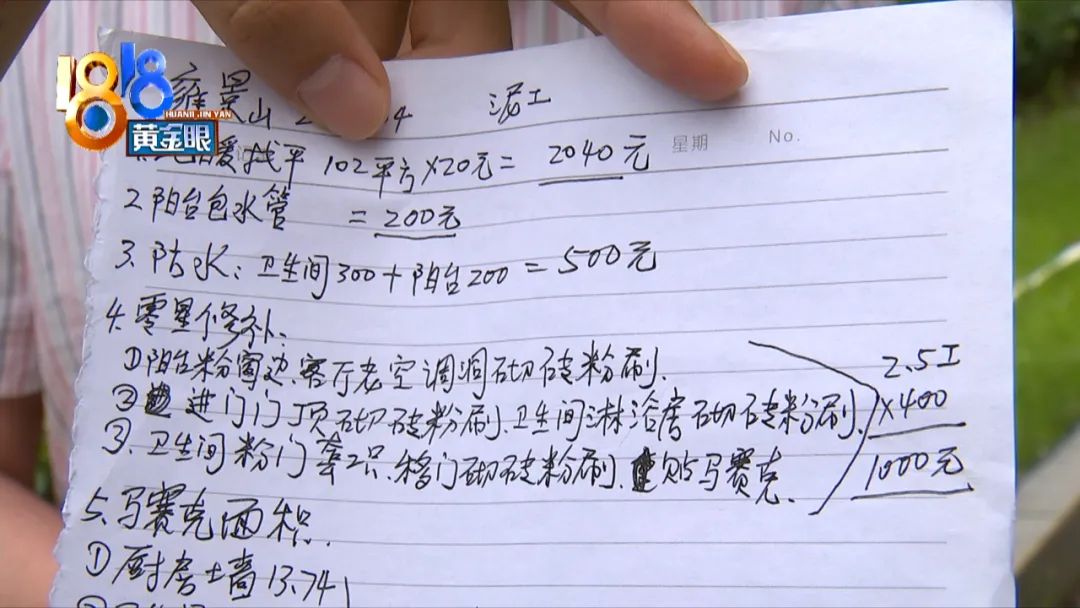 1818
HUANG JIN YAN
黄金眼
雍景山 2 4 泥工
星期 No.
暖找平 102平方×20元= 2040元
2.阳台包水管 =200元
3.防水:卫生间300+阳台200=500元
4.零星修补:
①阳台粉窗边、客厅老空调洞砌砖粉刷.
②进门门顶砌砖粉刷、卫生间淋浴房砌砖粉刷.
③.卫生间粉门 2只、移门砌砖粉刷、贴马赛克.
2.5工
×400
1000元
5.马赛克面积.
①厨房墙13.74